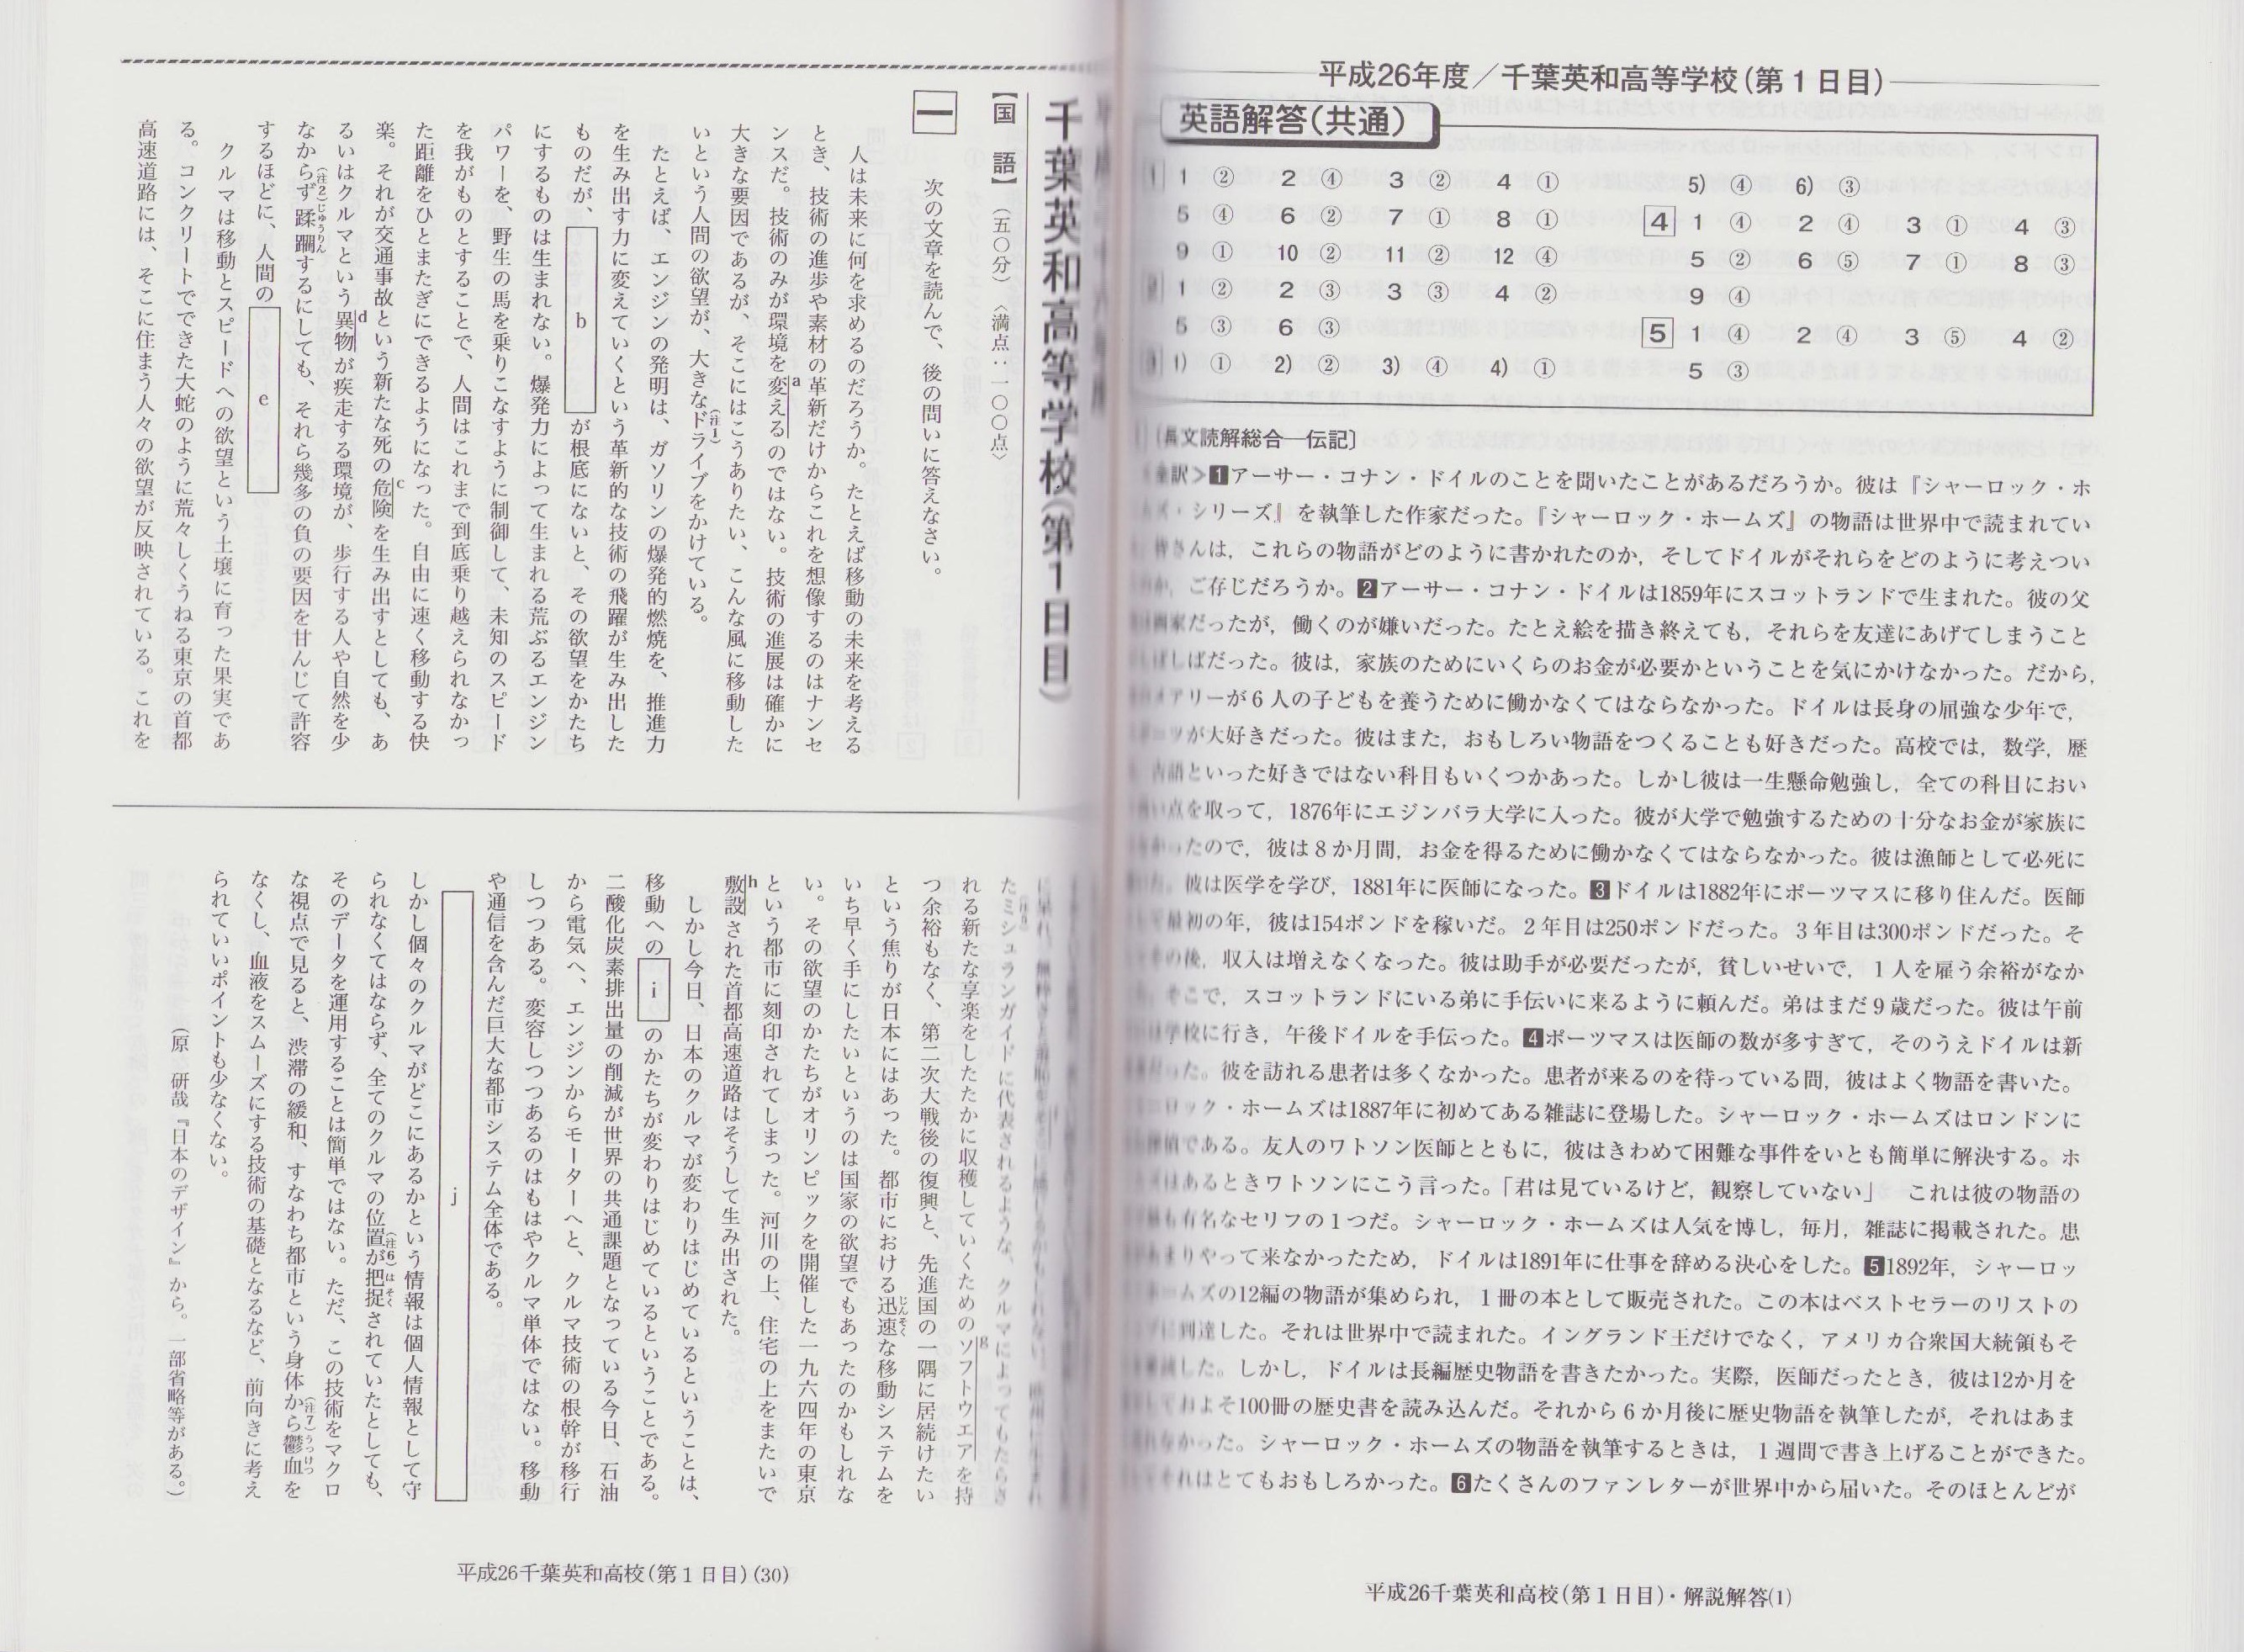 千葉英和高等学校(第1日目)
【国語】(五〇分)〈満点:一〇〇点〉
一 次の文章を読んで、後の問いに答えなさい。
人は未来に何を求めるのだろうか。たとえば移動の未来を考える
とき、技術の進歩や素材の革新だけからこれを想像するのはナンセ
ンスだ。技術のみが環境を a変えるのではない。技術の進展は確かに
大きな要因であるが、そこにはこうありたい、こんな風に移動した
いという人間の欲望が、大きな(注1)ドライブをかけている。
たとえば、エンジンの発明は、ガソリンの爆発的燃焼を、推進力
を生み出す力に変えていくという革新的な技術の飛躍が生み出した
ものだが、 b が根底にないと、その欲望をかたち
にするものは生まれない。爆発力によって生まれる荒ぶるエンジン
パワーを、野生の馬を乗りこなすように制御して、未知のスピード
を我がものとすることで、人間はこれまで到底乗り越えられなかっ
た距離をひとまたぎにできるようになった。自由に速く移動する快
楽。それが交通事故という新たな死の c危険を生み出すとしても、あ
るいはクルマという d異物が疾走する環境が、歩行する人や自然を少
なからず(注2)蹂躙じゅうりんするにしても、それら幾多の負の要因を甘んじて許容
するほどに、人間の e 。
クルマは移動とスピードへの欲望という土壌に育った果実であ
る。コンクリートでできた大蛇のように荒々しくうねる東京の首都
高速道路には、そこに住まう人々の欲望が反映されている。これを
たミシュランガイドに代表されるような、クルマによってもたらさ
れる新たな享楽をしたたかに収穫していくための gソフトウエアを持
つ余裕もなく、第二次大戦後の復興と、先進国の一隅に居続けたい
という焦りが日本にはあった。都市における迅速じんそくな移動システムを
いち早く手にしたいというのは国家の欲望でもあったのかもしれな
い。その欲望のかたちがオリンピックを開催した一九六四年の東京
という都市に刻印されてしまった。河川の上、住宅の上をまたいで
h敷設された首都高速道路はそうして生み出された。
しかし今日、日本のクルマが変わりはじめているということは、
移動への i のかたちが変わりはじめているということである。
二酸化炭素排出量の削減が世界の共通課題となっている今日、石油
から電気へ、エンジンからモーターへと、クルマ技術の根幹が移行
しつつある。変容しつつあるのはもはやクルマ単体ではない。移動
や通信を含んだ巨大な都市システム全体である。
j
しかし個々のクルマがどこにあるかという情報は個人情報として守
られなくてはならず、全てのクルマの位置が(注6)把捉はそくされていたとしても、
そのデータを運用することは簡単ではない。ただ、この技術をマクロ
な視点で見ると、渋滞の緩和、すなわち都市という身体から(注7)鬱血うっけつを
なくし、血液をスムーズにする技術の基礎となるなど、前向きに考え
られていいポイントも少なくない。
(原 研哉『日本のデザイン』から。一部省略等がある。)
平成26千葉英和高校(第1日目)(30)
平成26年度/千葉英和高等学校(第1日目)
英語解答(共通)
1 1 ② 2 ④ 3 ② 4 ①
5 ④ 6 ② 7 ① 8 ①
9 ① 10 ② 11 ② 12 ④
2 1 ② 2 ③ 3 ③ 4 ②
5 ③ 6 ③
3 1) ① 2) ② 3) ④ 4) ①
5) ④ 6) ③
4 1 ④ 2 ④ 3 ① 4 ③
5 ② 6 ⑤ 7 ① 8 ③
9 ④
5 1 ④ 2 ④ 3 ⑤ 4 ②
5 ③
〔長文読解総合―伝記〕
全訳>1アーサー・コナン・ドイルのことを聞いたことがあるだろうか。彼は『シャーロック・ホ
ズ・シリーズ』を執筆した作家だった。『シャーロック・ホームズ』の物語は世界中で読まれてい
皆さんは,これらの物語がどのように書かれたのか,そしてドイルがそれらをどのように考えつい
か,ご存じだろうか。2アーサー・コナン・ドイルは1859年にスコットランドで生まれた。彼の父
画家だったが,働くのが嫌いだった。たとえ絵を描き終えても,それらを友達にあげてしまうこと
しばしばだった。彼は,家族のためにいくらのお金が必要かということを気にかけなかった。だから,
メアリーが6人の子どもを養うために働かなくてはならなかった。ドイルは長身の屈強な少年で,
ーツが大好きだった。彼はまた,おもしろい物語をつくることも好きだった。高校では,数学,歴
古語といった好きではない科目もいくつかあった。しかし彼は一生懸命勉強し,全ての科目におい
い点を取って,1876年にエジンバラ大学に入った。彼が大学で勉強するための十分なお金が家族に
かったので,彼は8か月間,お金を得るために働かなくてはならなかった。彼は漁師として必死に
彼は医学を学び,1881年に医師になった。3ドイルは1882年にポーツマスに移り住んだ。医師
て最初の年,彼は154ポンドを稼いだ。2年目は250ポンドだった。3年目は300ポンドだった。そ
その後,収入は増えなくなった。彼は助手が必要だったが,貧しいせいで,1人を雇う余裕がなか
そこで,スコットランドにいる弟に手伝いに来るように頼んだ。弟はまだ9歳だった。彼は午前
学校に行き,午後ドイルを手伝った。4ポーツマスは医師の数が多すぎて,そのうえドイルは新
だった。彼を訪れる患者は多くなかった。患者が来るのを待っている間,彼はよく物語を書いた。
ロック・ホームズは1887年に初めてある雑誌に登場した。シャーロック・ホームズはロンドンに
探偵である。友人のワトソン医師とともに,彼はきわめて困難な事件をいとも簡単に解決する。ホ
ズはあるときワトソンにこう言った。「君は見ているけど,観察していない」 これは彼の物語の
最も有名なセリフの1つだ。シャーロック・ホームズは人気を博し,毎月,雑誌に掲載された。患
あまりやって来なかったため,ドイルは1891年に仕事を辞める決心をした。51892年,シャーロッ
ホームズの12編の物語が集められ,1冊の本として販売された。この本はベストセラーのリストの
に到達した。それは世界中で読まれた。イングランド王だけでなく,アメリカ合衆国大統領もそ
した。しかし,ドイルは長編歴史物語を書きたかった。実際,医師だったとき,彼は12か月を
ておよそ100冊の歴史書を読み込んだ。それから6か月後に歴史物語を執筆したが,それはあま
れなかった。シャーロック・ホームズの物語を執筆するときは,1週間で書き上げることができた。
それはとてもおもしろかった。6たくさんのファンレターが世界中から届いた。そのほとんどが
平成26千葉英和高校(第1日目)・解説解答(1)